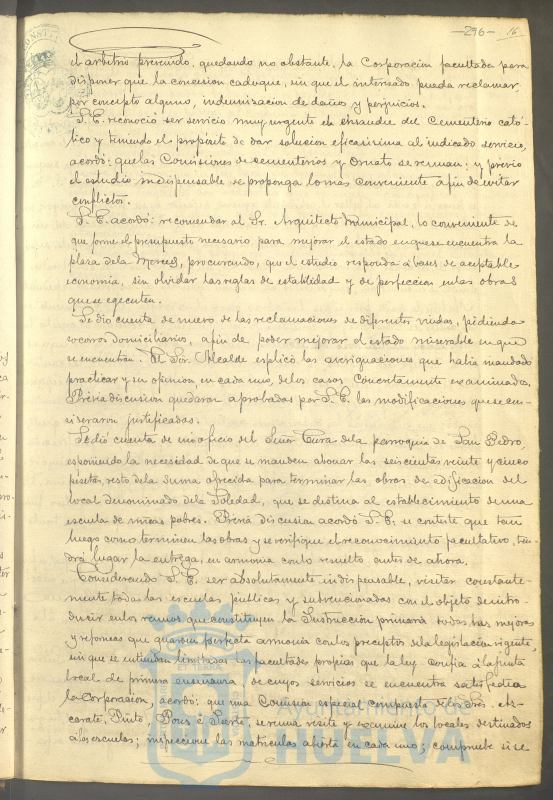 -296- 16
el arbitrio prevenido, quedando no obstante, la Corporacion facultada para
disponer que la concesion caduque, sin que el interesado pueda reclamar
por concepto alguno, indemnizacion de daños y perjuicios.
S. E. reconoció ser servicio muy urgente el ensanche del Cementerio cató-
lico y teniendo el propósito de dar solucion eficacisima al indicado servicio,
acordó: que las Comisiones de cementerios y Ornato se reunan; y previo
el estudio indispensable se proponga lo mas conveniente afin de evitar
conflictos.
S. E. acordó: recomendar al Sr. Arquitecto Municipal, lo conveniente de
que forme el presupuesto necesario para mejorar el estado en que se encuentra la
plaza de la Merced, procurando, que el estudio responda á bases de aceptable
economia, sin olvidar las reglas de estabilidad y de perfeccion en las obras
que se egecuten.
Se dio cuenta de nuevo de las reclamaciones de diferentes viudas, pidiendo
socorros domiciliarios, afin de poder mejorar el estado miserable en que
se encuentran. El Sor. Alcalde esplicó las averiguaciones que habia mandado
practicar y su opinion en cada uno, de los casos concretamente examinados.
Prévia discusion quedaron aprobadas por S. E. las modificaciones que se con-
sideraron justificadas.
Se dió cuenta de un oficio del Señor Cura de la parroquia de San Pedro,
esponiendo la necesidad de que se manden abonar las seiscientas veinte y cinco
pesetas, resto de la suma ofrecida para terminar las obras de edificacion del
local denominado de la Soledad, que se destina al establecimiento de una
escuela de niñas pobres. Prévia discusion acordó S. E. se conteste que tan
luego como terminen las obras y se verifique el reconocimiento facultativo, ten-
drá lugar la entrega, en armonia con lo resuelto antes de ahora.
Considerando S. E. ser absolutamente indispensable, visitar constante-
mente todas las escuelas publicas y subvencionadas con el objeto de intro-
ducir en los ramos que constituyen la Instruccion primaria todas las mejoras
y reformas que guarden perfecta armonia con los preceptos de la legislacion vigente,
sin que se entiendan limitadas las facultades propias que la ley confia á la junta
local de primera enseñanza, de cuyos servicios se encuentra satisfecha
la Corporacion, acordó: que una Comision especial compuesta de los Sres.
Pinto, é se reuna visite y examine los locales destinados
á las escuelas; inspeccione las matriculas abierta en cada uno; compruebe si se
AYUNTAMIENTO DE
HUELVA